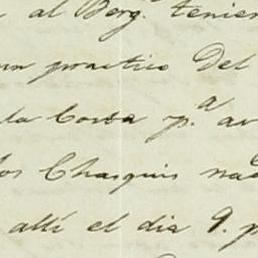 al Berg.n tenien
un practico Del
la Corva p.a av
los Chasquis na
alli el dia 9. p